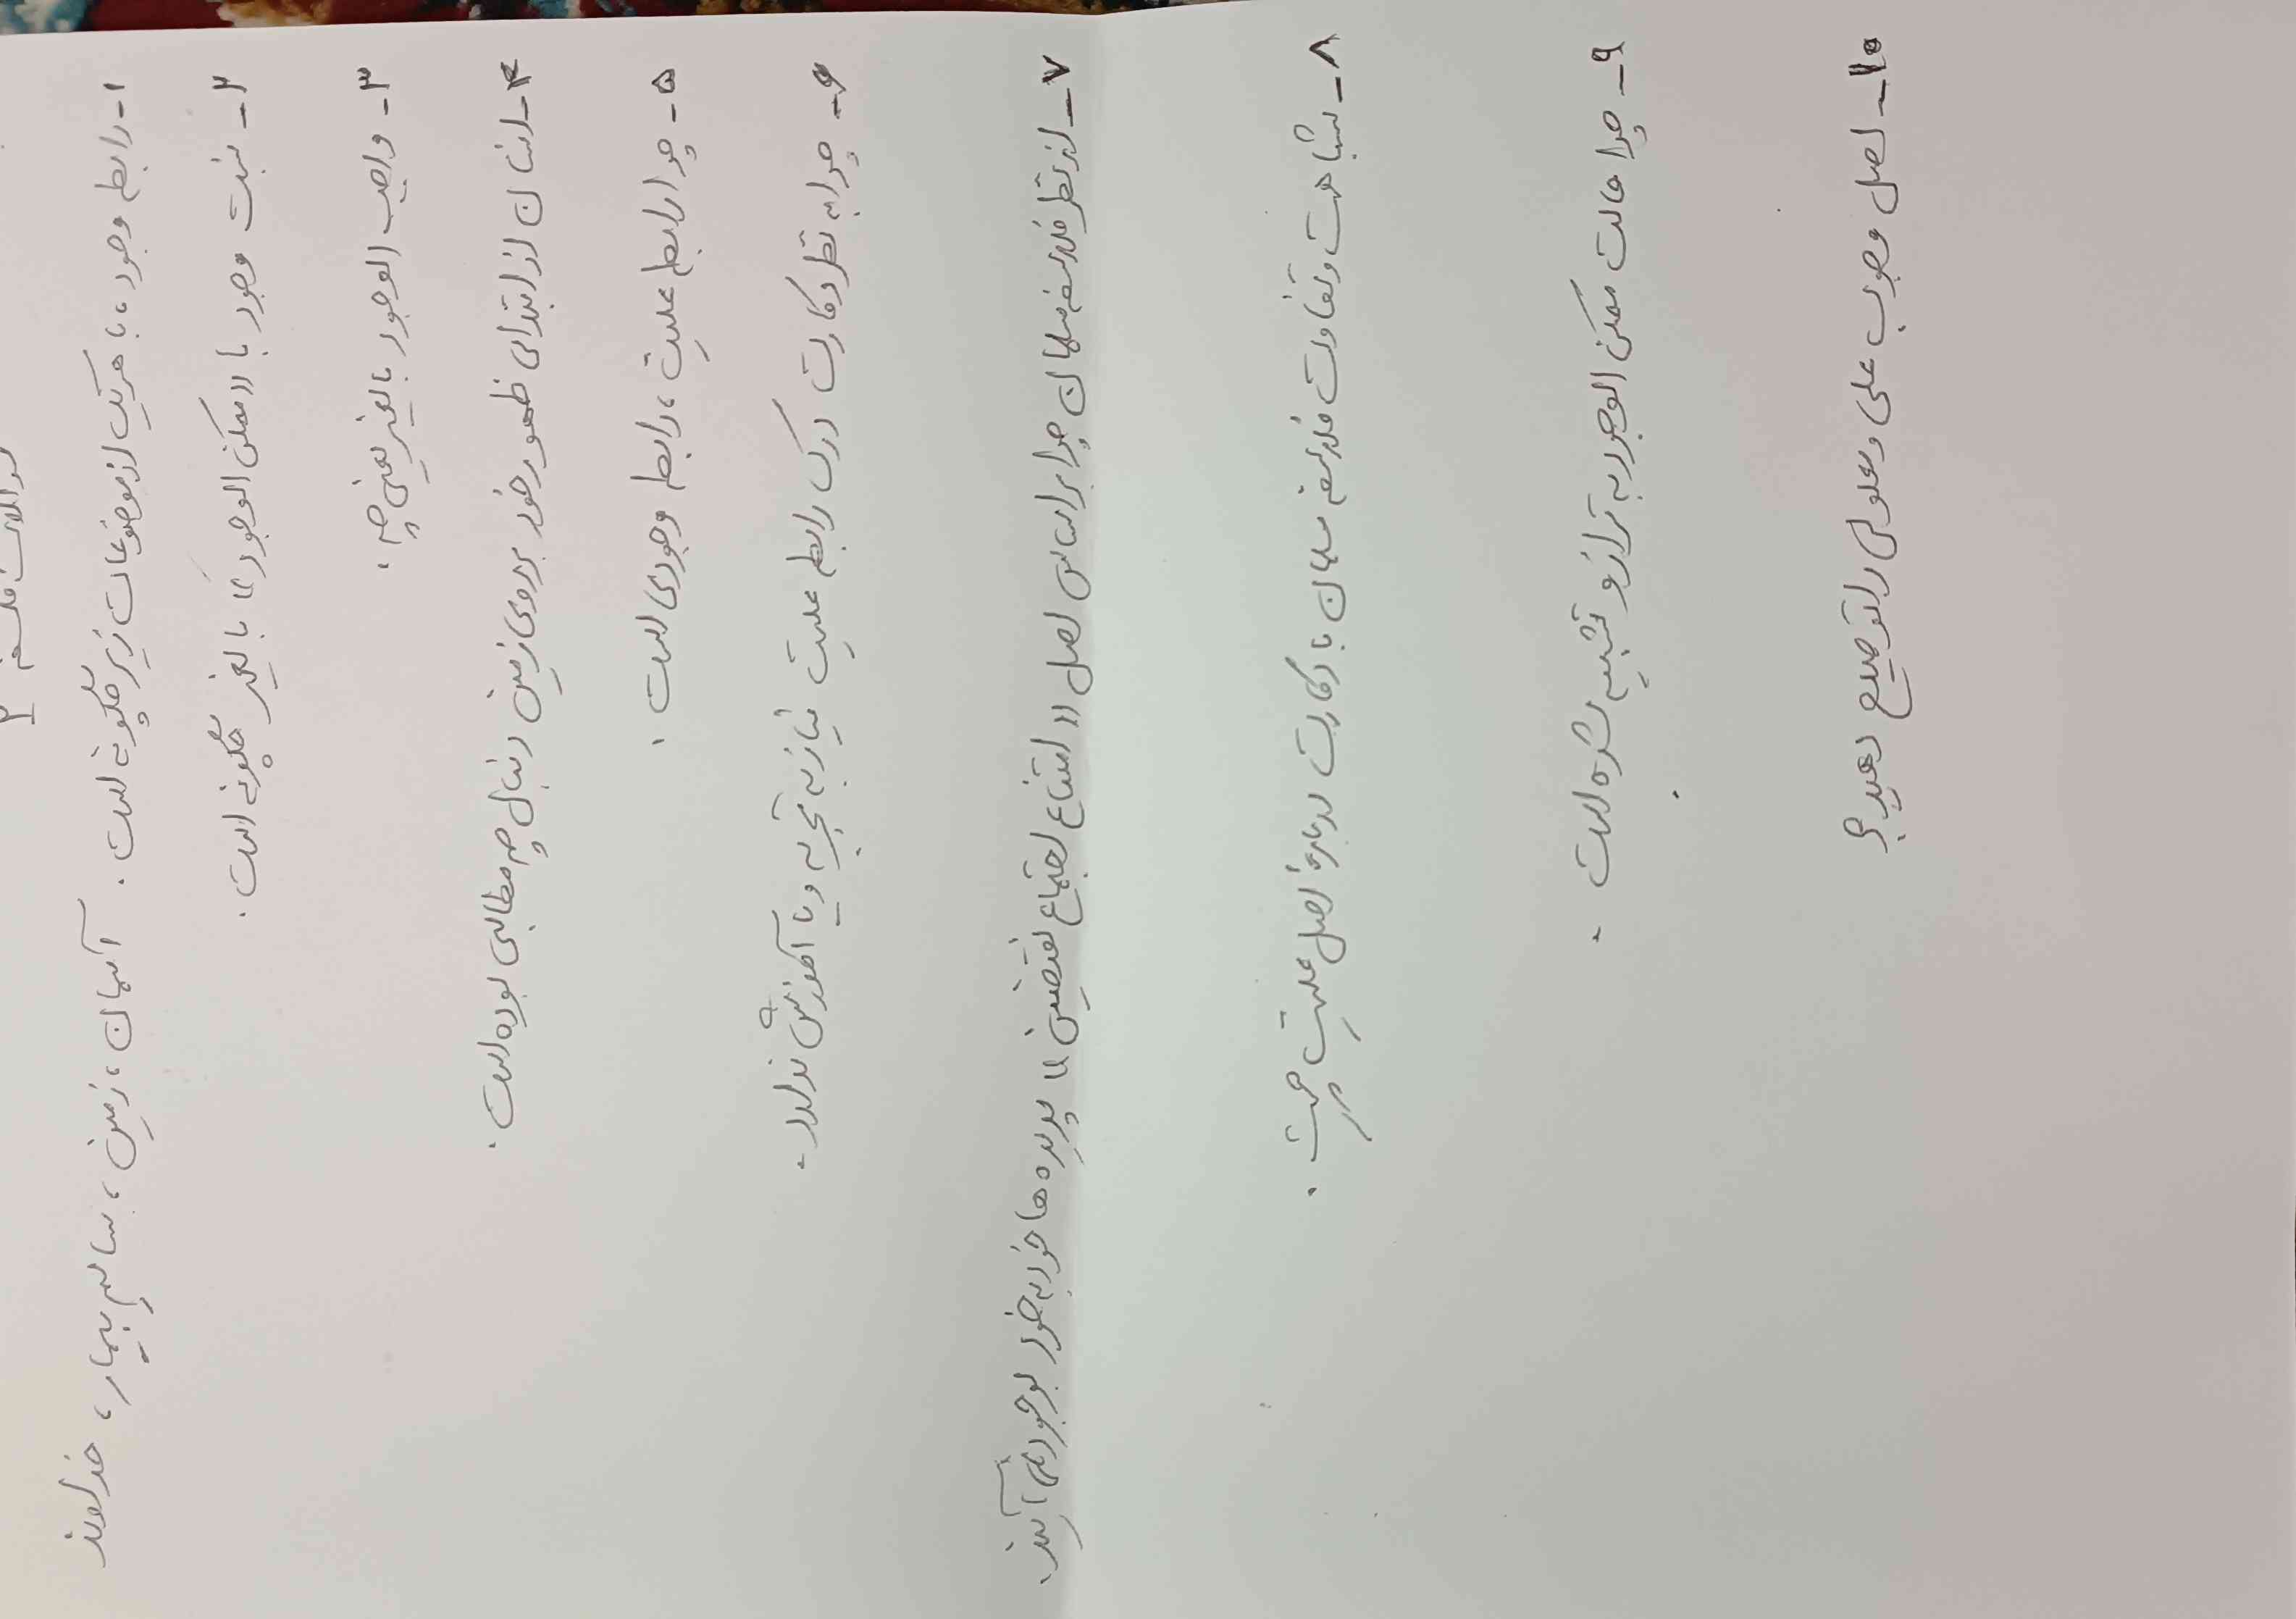 ۱- رابطه وجود، با هریک از موضوعات زیر چگونه است. آسمان، زمین، سالم بیمار، خداوند
۲- نسبت وجود با «ممکن الوجود» بالغیر چگونه است.
۳- واجب الوجود بالغیر یعنی چه.
۴- انسان از ابتدای ظهور خود بر روی زمین دنبال چه مطالبی بوده است.
۵- چرا رابطه علیت، رابطه وجودی است.
۶- چرا به نظر دکارت درک رابطه علیت نیاز به تجربه و یا آموزش ندارد.
۷- از نظر فلاسفه مسلمان چرا براساس اصل «امتناع اجتماع نقیضین» پدیده ها خود به خود بوجود نمی آیند.
۸- شباهت و تفاوت فلاسفه مسلمان با دکارت درباره اصل علیت چیست.
۹- چرا حالت ممکن الوجود به ترازو تشبیه شده است.
۱۰- اصل وجوب علی و معلولی را توضیح دهید؟